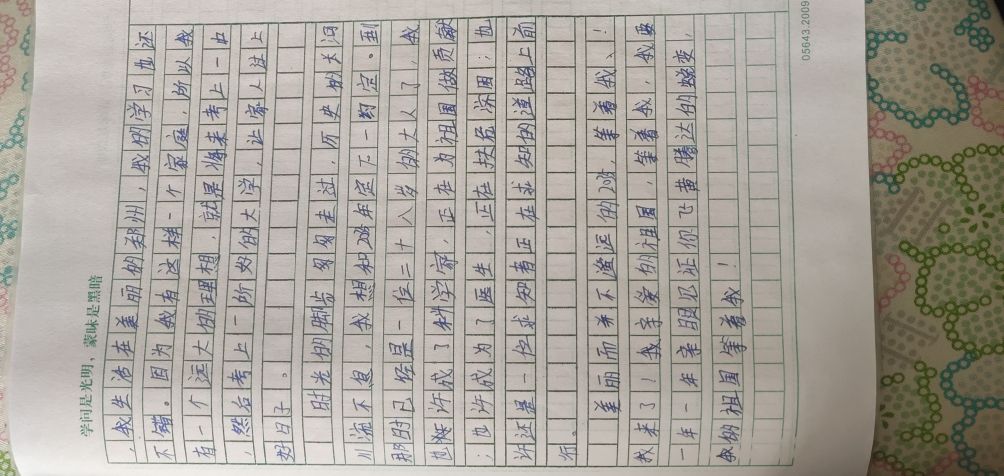 学问是光明，蒙昧是黑暗
，我生活在美丽的郑州，我的学习也还
不错。因为我有这样一个家庭，所以我
有一个远大的理想，就是将来考上一中
，然后考上一所好的大学，让家人过上
好日子。
时光的脚步匆匆走过，历史的大河
川流不息，我想和2035年定下一约定。到
那时已经是一位二十八岁的大人了，我
也许成了科学家，正在为祖国做贡献
；也许成为了医生，正在扶危济困；也
许还是一位求知者正在求知的道路上前
行。
美丽而并不遥远的2035，等着我、！
我来了！我亲爱的祖国，等着我，我要
一年一年亲眼见证你飞黄腾达的蜕变，
我的祖国等着我！
05643.2009